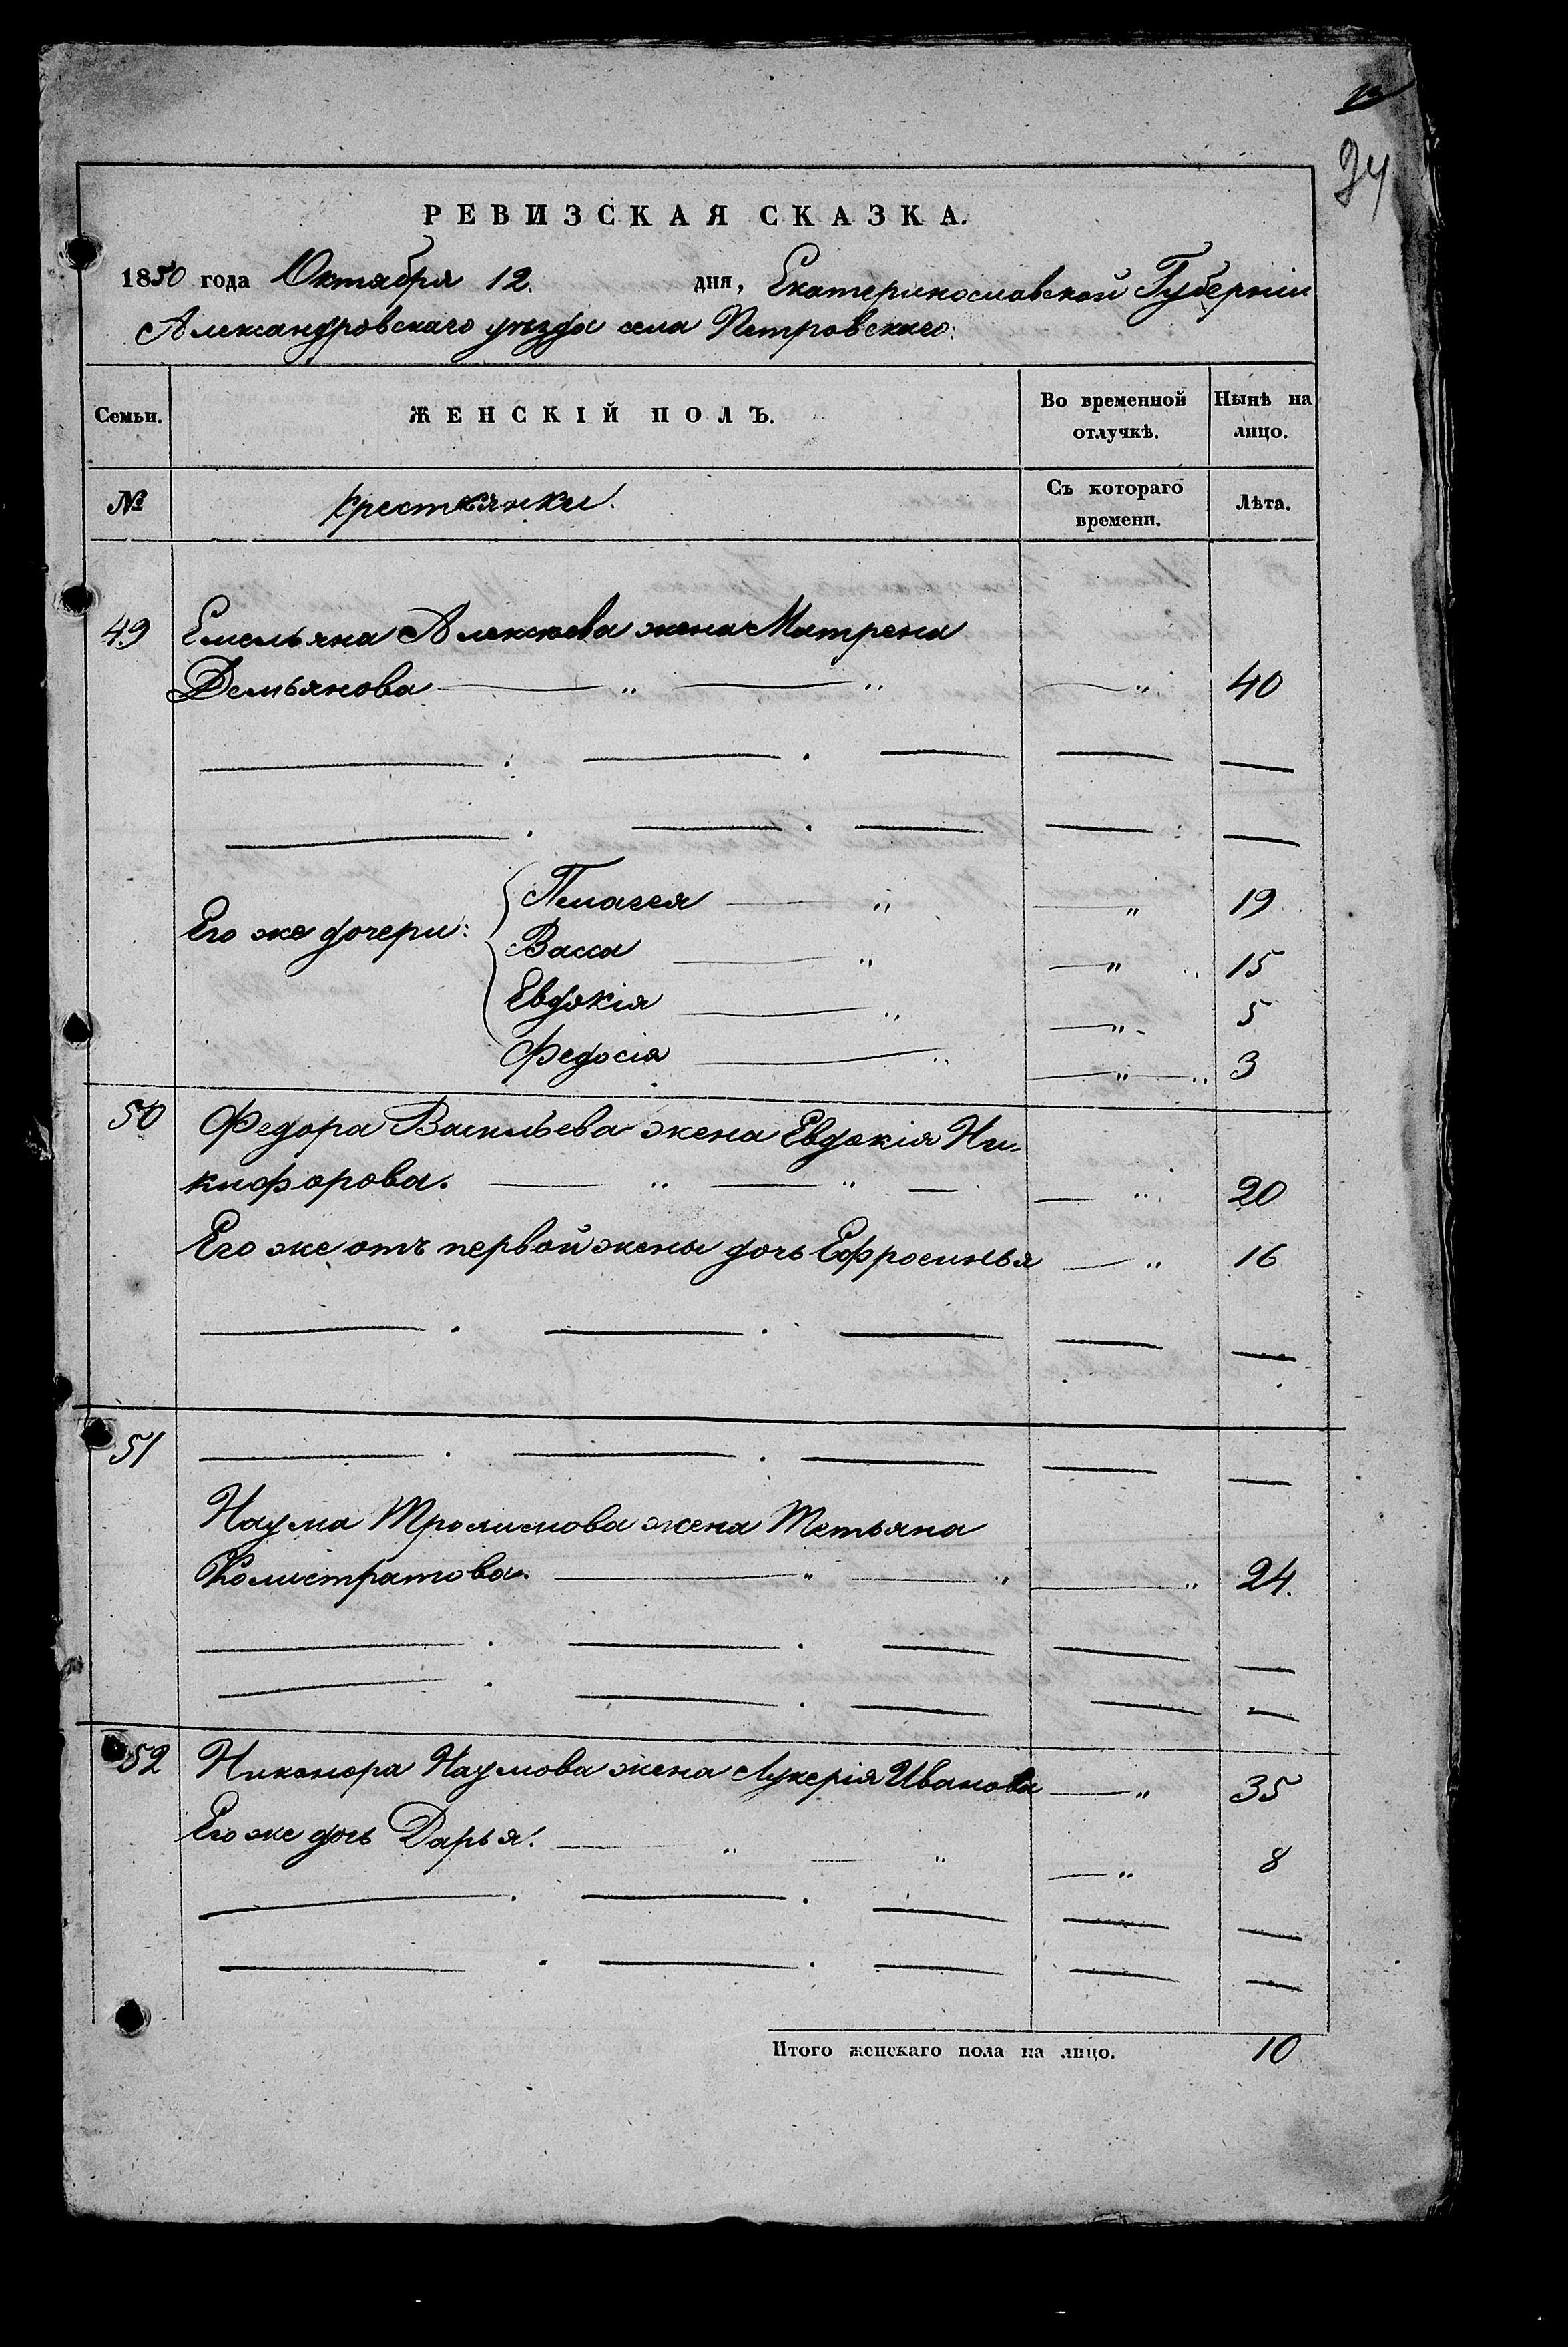 34
РЕВИЗСКАЯ СКАЗКА.
1850 года Октября 12. дня, Екатеринославской Губерніи
Александровскаго уѣзда села Петровскаго:
Семьи. ЖЕНСКІЙ ПОЛЪ. Во временной отлучкѣ. Нынѣ на лицо.
№ Крестьянки. Съ котораго времени. Лѣта.
49 Емельяна Алексѣева жена Матрена
Демьянова — " — " — " 40
— . — . — — —
— . — . — — —
Его же дочери:
Пелагея — " — " 19
Васса — " — " 15
Евдокія — " — " 5
Федосія — " — " 3
50 Федора Васильева жена Евдокія Ни-
кифорова. — " — " — — " 20
Его же отъ первой жены дочь Ефросинья — " 16
— . — . — — —
51 — . — . — — —
Наума Трофимова жена Тетьяна
Колистратова. — " — " — " 24.
— . — . — — —
— . — . — — —
52 Никонора Наумова жена Лукерія Иванова — " 35
Его же дочь Дарья. — " — " — " 8
— . — . — — —
— . — . — — —
Итого женскаго пола на лицо. 10